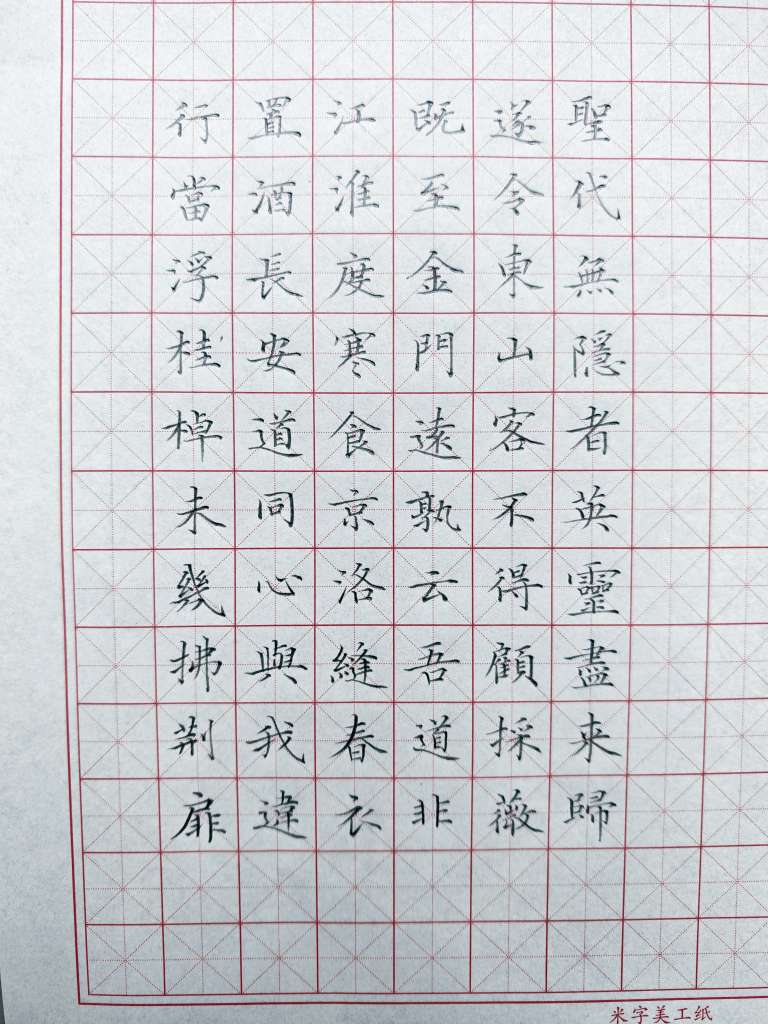 聖代無隱者英靈盡来歸
遂令東山客不得顧採薇
既至金門遠孰云吾道非
江淮度寒食京洛縫春衣
置酒長安道同心與我違
行當浮桂棹未幾拂荆扉
米字美工纸